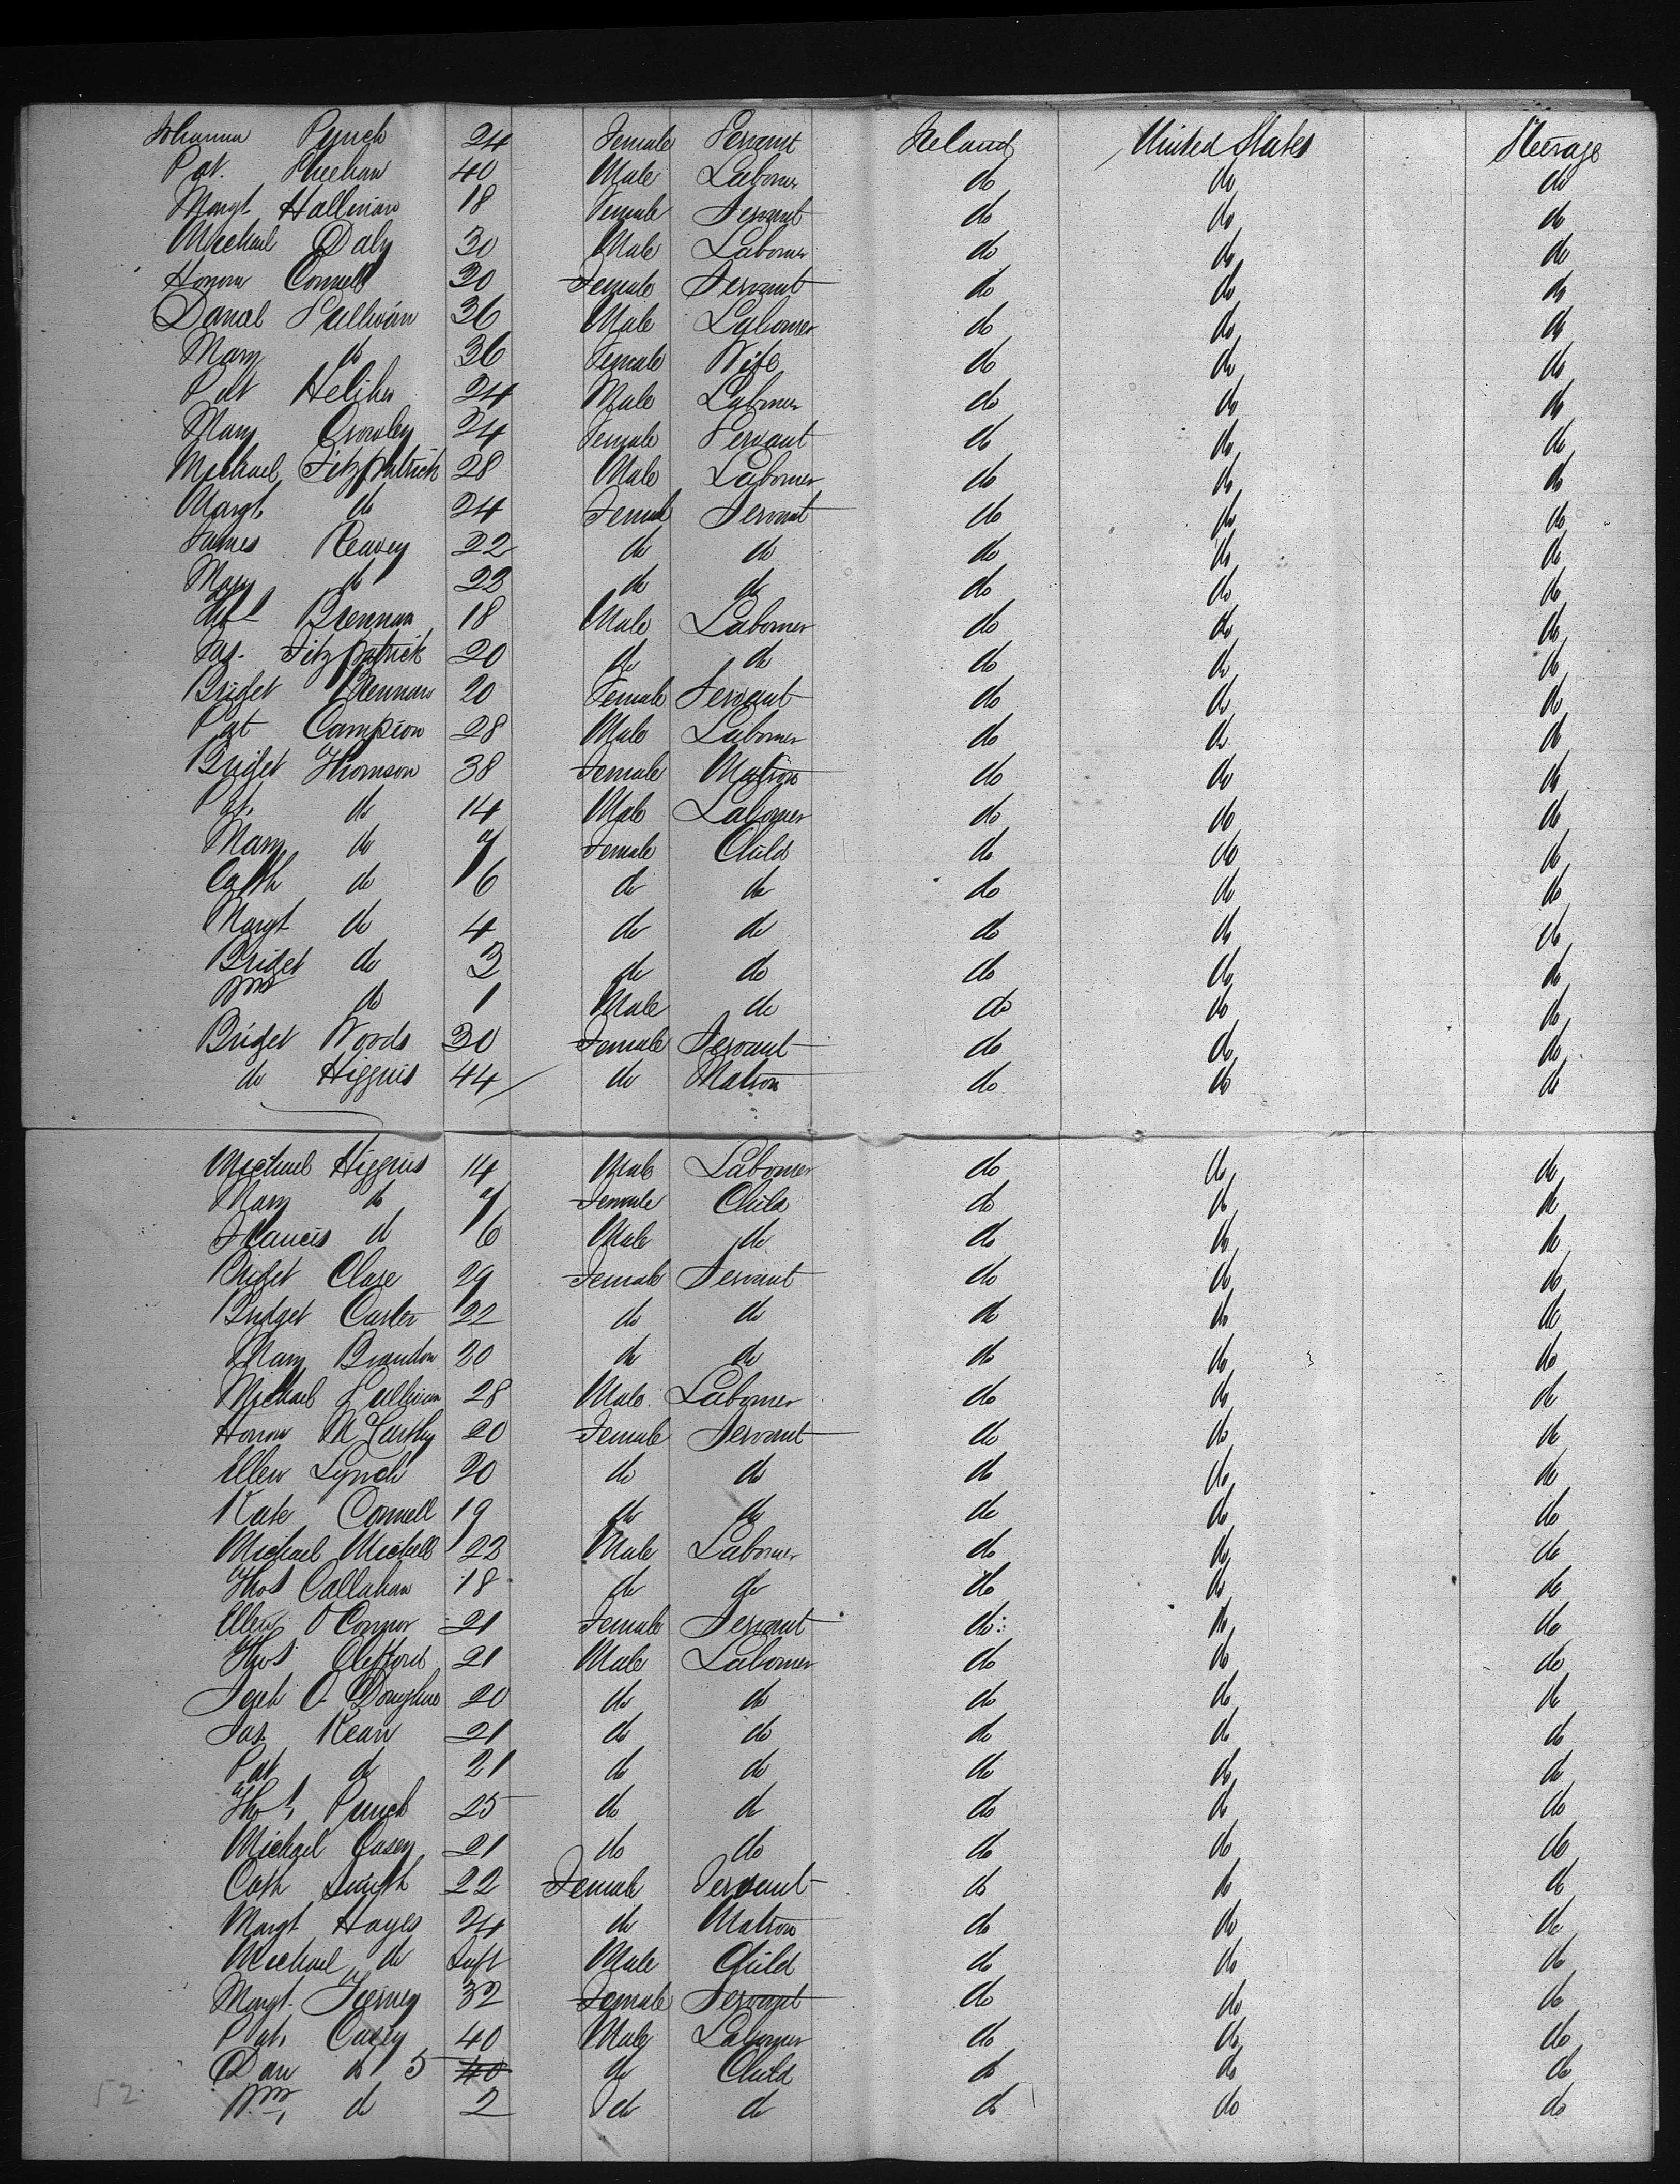 Johanna Punch 24 Female Servant Ireland United States Steerage
Pat. Sheehan 40 Male Laborer do do do
Margt Hallinan 18 Female Servant do do do
Michael Daly 30 Male Laborer do do do
Honora Connell 30 Female Servant do do do
Danal Sullivan 36 Male Laborer do do do
Mary do 36 Female Wife do do do
Pat Helihi 24 Male Laborer do do do
Mary Crowley 24 Female Servant do do do
Michael Fitzpatrick 28 Male Laborer do do do
Margt do 24 Female Servant do do do
James Reavey 22 do do do do do
Mary do 22 do do do do do
Brennan 18 Male Laborer do do do
Jas. Fitzpatrick 20 do do do do do
Bridget Brennan 20 Female Servant do do do
Pat Campion 28 Male Laborer do do do
Bridget Thomson 38 Female Matron do do do
Pat. do 14 Male Laborer do do do
Mary do 7 Female Child do do do
Cath do 6 do do do do do
Margt do 4 do do do do do
Bridget do 3 do do do do do
Wm do 1 Male do do do do
Bridget Woods 30 Female Servant do do do
do Higgins 44 do Matron do do do
Michael Higgins 14 Male Laborer do do do
Mary do 7 Female Child do do do
Francis do 6 Male do do do do
Bridget Clare 29 Female Servant do do do
Bridget Carter 22 do do do do do
Mary Brandon 20 do do do do do
Michael Sullivan 28 Male Laborer do do do
Honora McCarthy 20 Female Servant do do do
Ellen Lynch 20 do do do do do
Kate Connell 19 do do do do do
Michael Michell 22 Male Laborer do do do
Thos Callahan 18 do do do do do
Ellen O Connor 21 Female Servant do do do
Thos Clifford 21 Male Laborer do do do
O Donoghue 20 do do do do do
Jas. Kean 21 do do do do do
Pat do 21 do do do do do
Thos, Punch 25 do do do do do
Michael Casey 21 do do do do do
Cath Smith 22 Female Servant do do do
Margt Hayes 24 do Matron do do do
Michael do Inft Male Child do do do
Margt. Tierney 32 Female Servant do do do
Pat. Casey 40 Male Laborer do do do
Dan do 5 40 do Child do do do
52 Wm, do 2 do do do do do